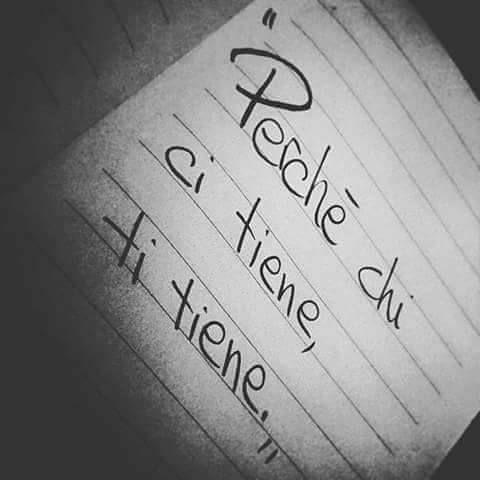 "Perchē chi
ci tiene,
ti tiene."